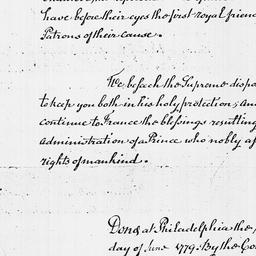 have before their eyes the first royal frien
Patrons of their cause.
We beseech the Supreme dispo
to keep you both in his holy protection, and
continue to France the blessings resulting
administration of Prince who nobly a
rights of mankind.
Done at Philadelphia the
day of June 1779. By the Co